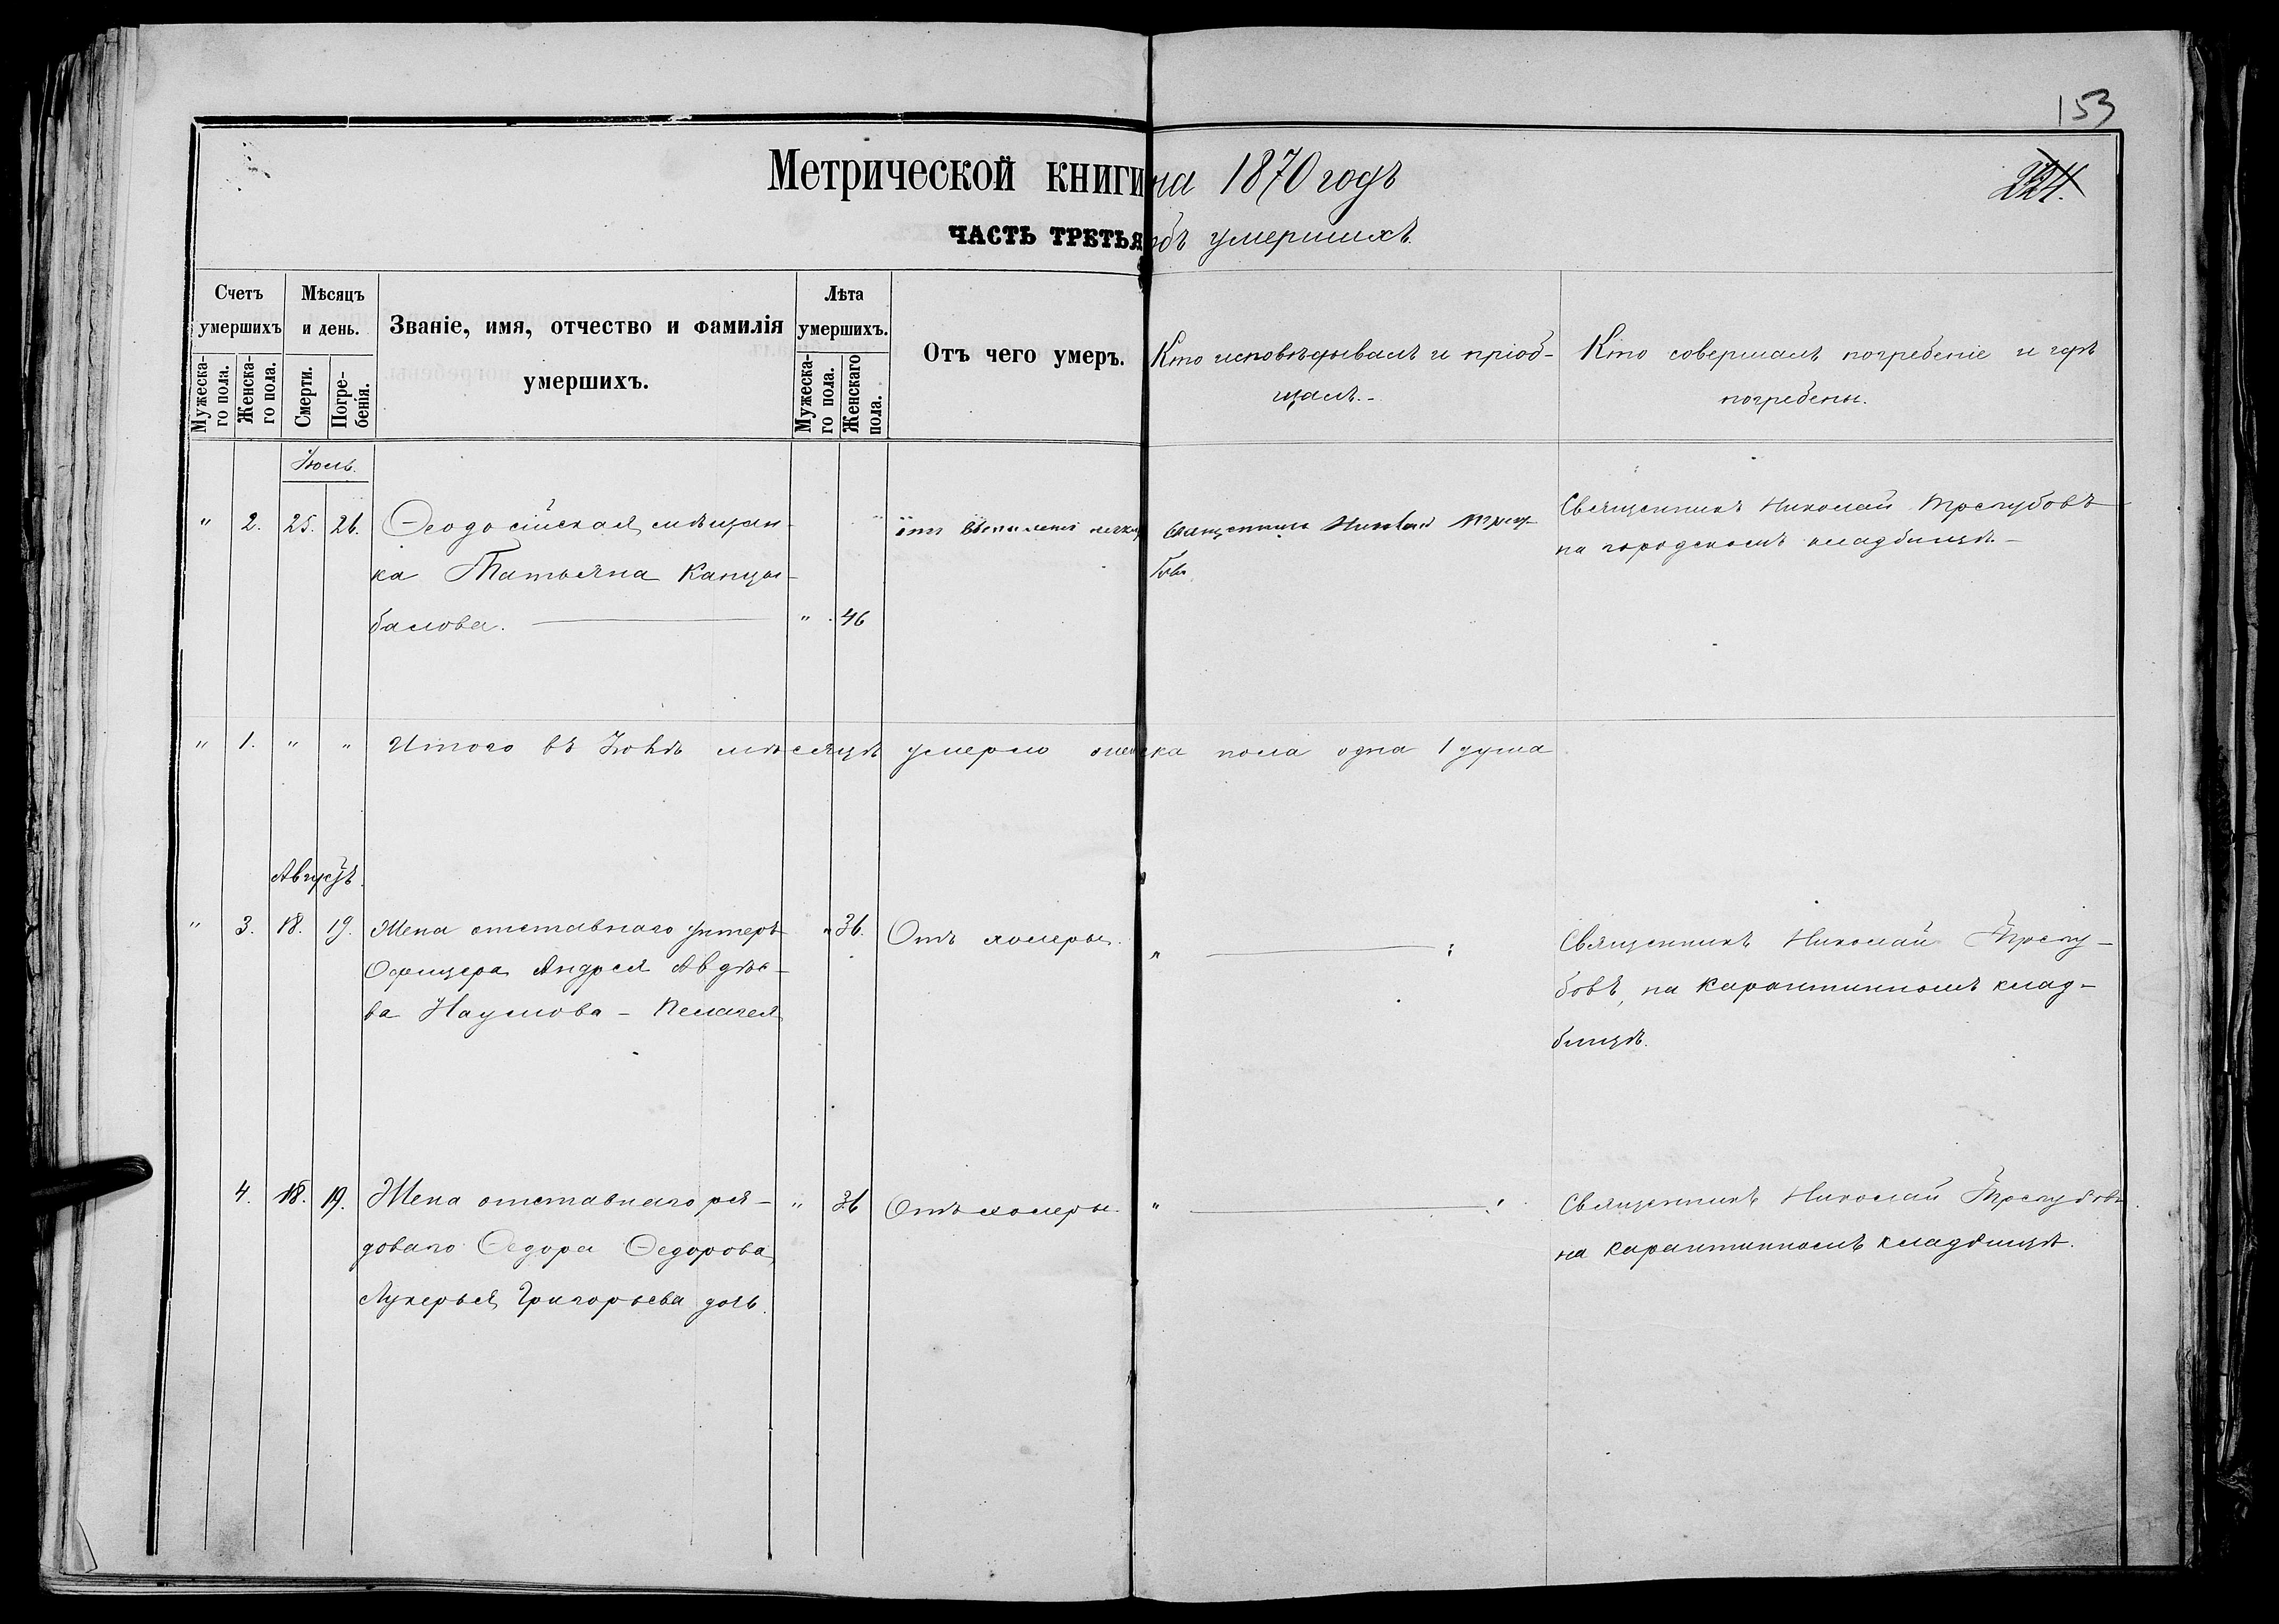 153
224.
Метрической книги на 1870 годъ
ЧАСТЬ ТРЕТЬЯ объ умершихъ.
Счетъ умершихъ
Мѣсяцъ и день.
Званіе, имя, отчество и фамилія умершихъ.
Лѣта умершихъ.
Отъ чего умеръ.
Кто исповѣдывалъ и пріоб-
щалъ.-
Кто совершалъ погребеніе и гдѣ
погребены.
Мужеска-
го пола.
Женска-
го пола.
Смерти.
Погре-
бенія.
Мужеска-
го пола.
Женскаго
пола.
Іюль.
" 2. 25. 26. Ѳеодосійская мѣщан-
ка Татьяна Канцы-
балова. " 46
отъ воспаленія легких
Священникъ Николай Трегу-
бовъ
Священникъ Николай Трегубовъ
на городскомъ кладбищѣ.-
" 1. " " Итого въ Іюлѣ мѣсяцѣ умерло женска пола одна 1 душа
Августъ.
" 3. 18. 19. Жена отставнаго унтеръ
Офицера Андрея Авдѣе-
ва Наумова - Пелагея
" 36. Отъ холеры. "
Священникъ Николай Трегу-
бовъ, на карантинномъ клад-
бищѣ.
4. 18. 19. Жена отставнаго ря-
доваго Ѳедора Ѳедорова
Лукерья Григорьева дочь.
" 36 Отъ холеры. "
Священникъ Николай Трегубовъ
на карантинномъ кладбищѣ.